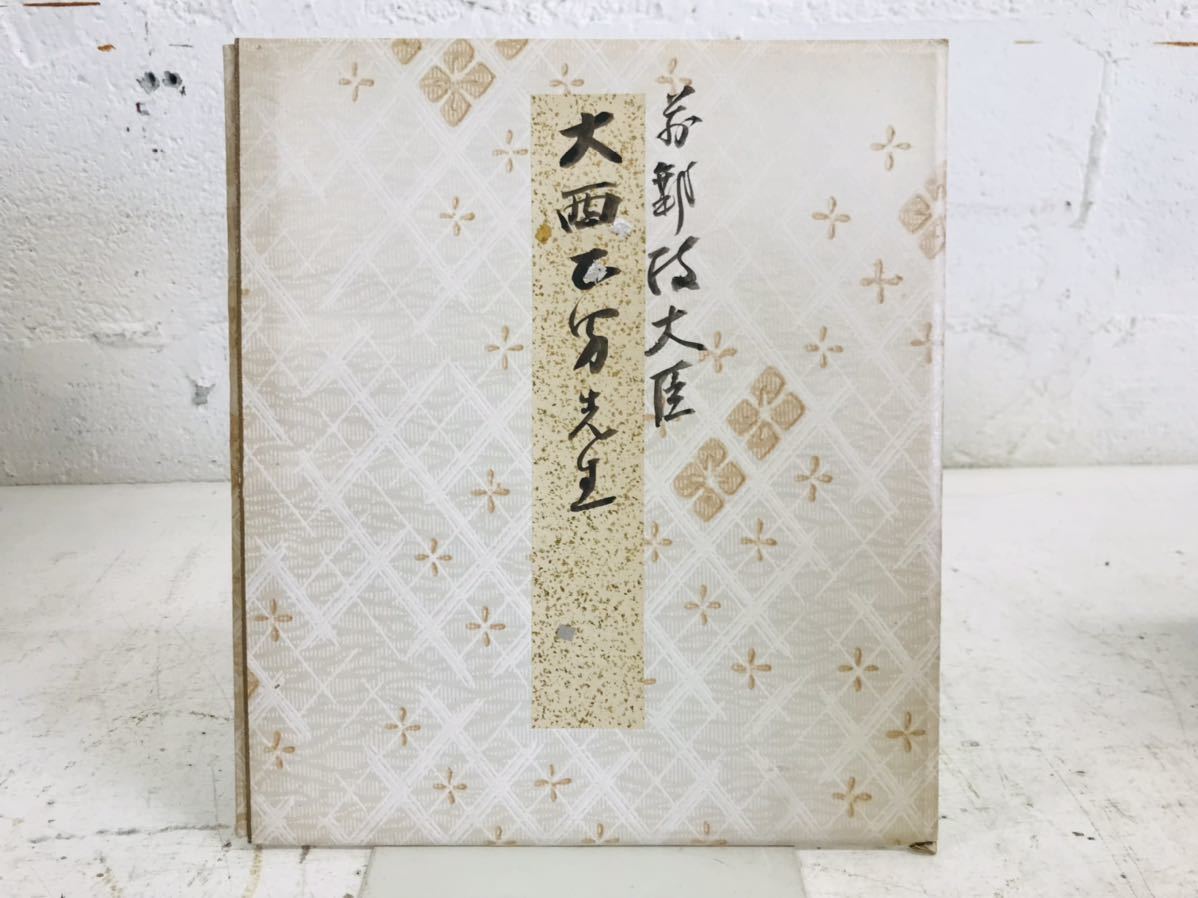 前郵政大臣
大西正男先生